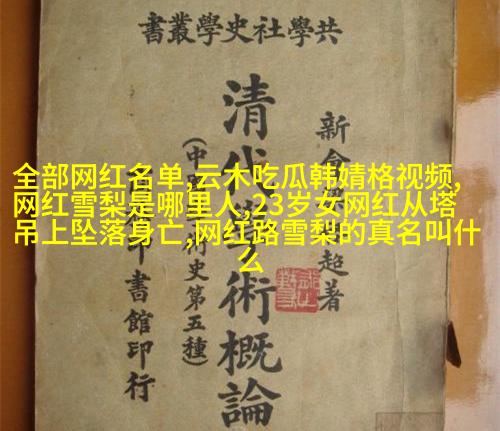 共學社史學叢書
新會超著
清代學術概論
(中國學術史第五種)
書館印行
全部网红名单,云木吃瓜韩婧格视频,
网红雪梨是哪里人,23岁女网红从塔
吊上坠落身亡,网红路雪梨的真名叫什
么